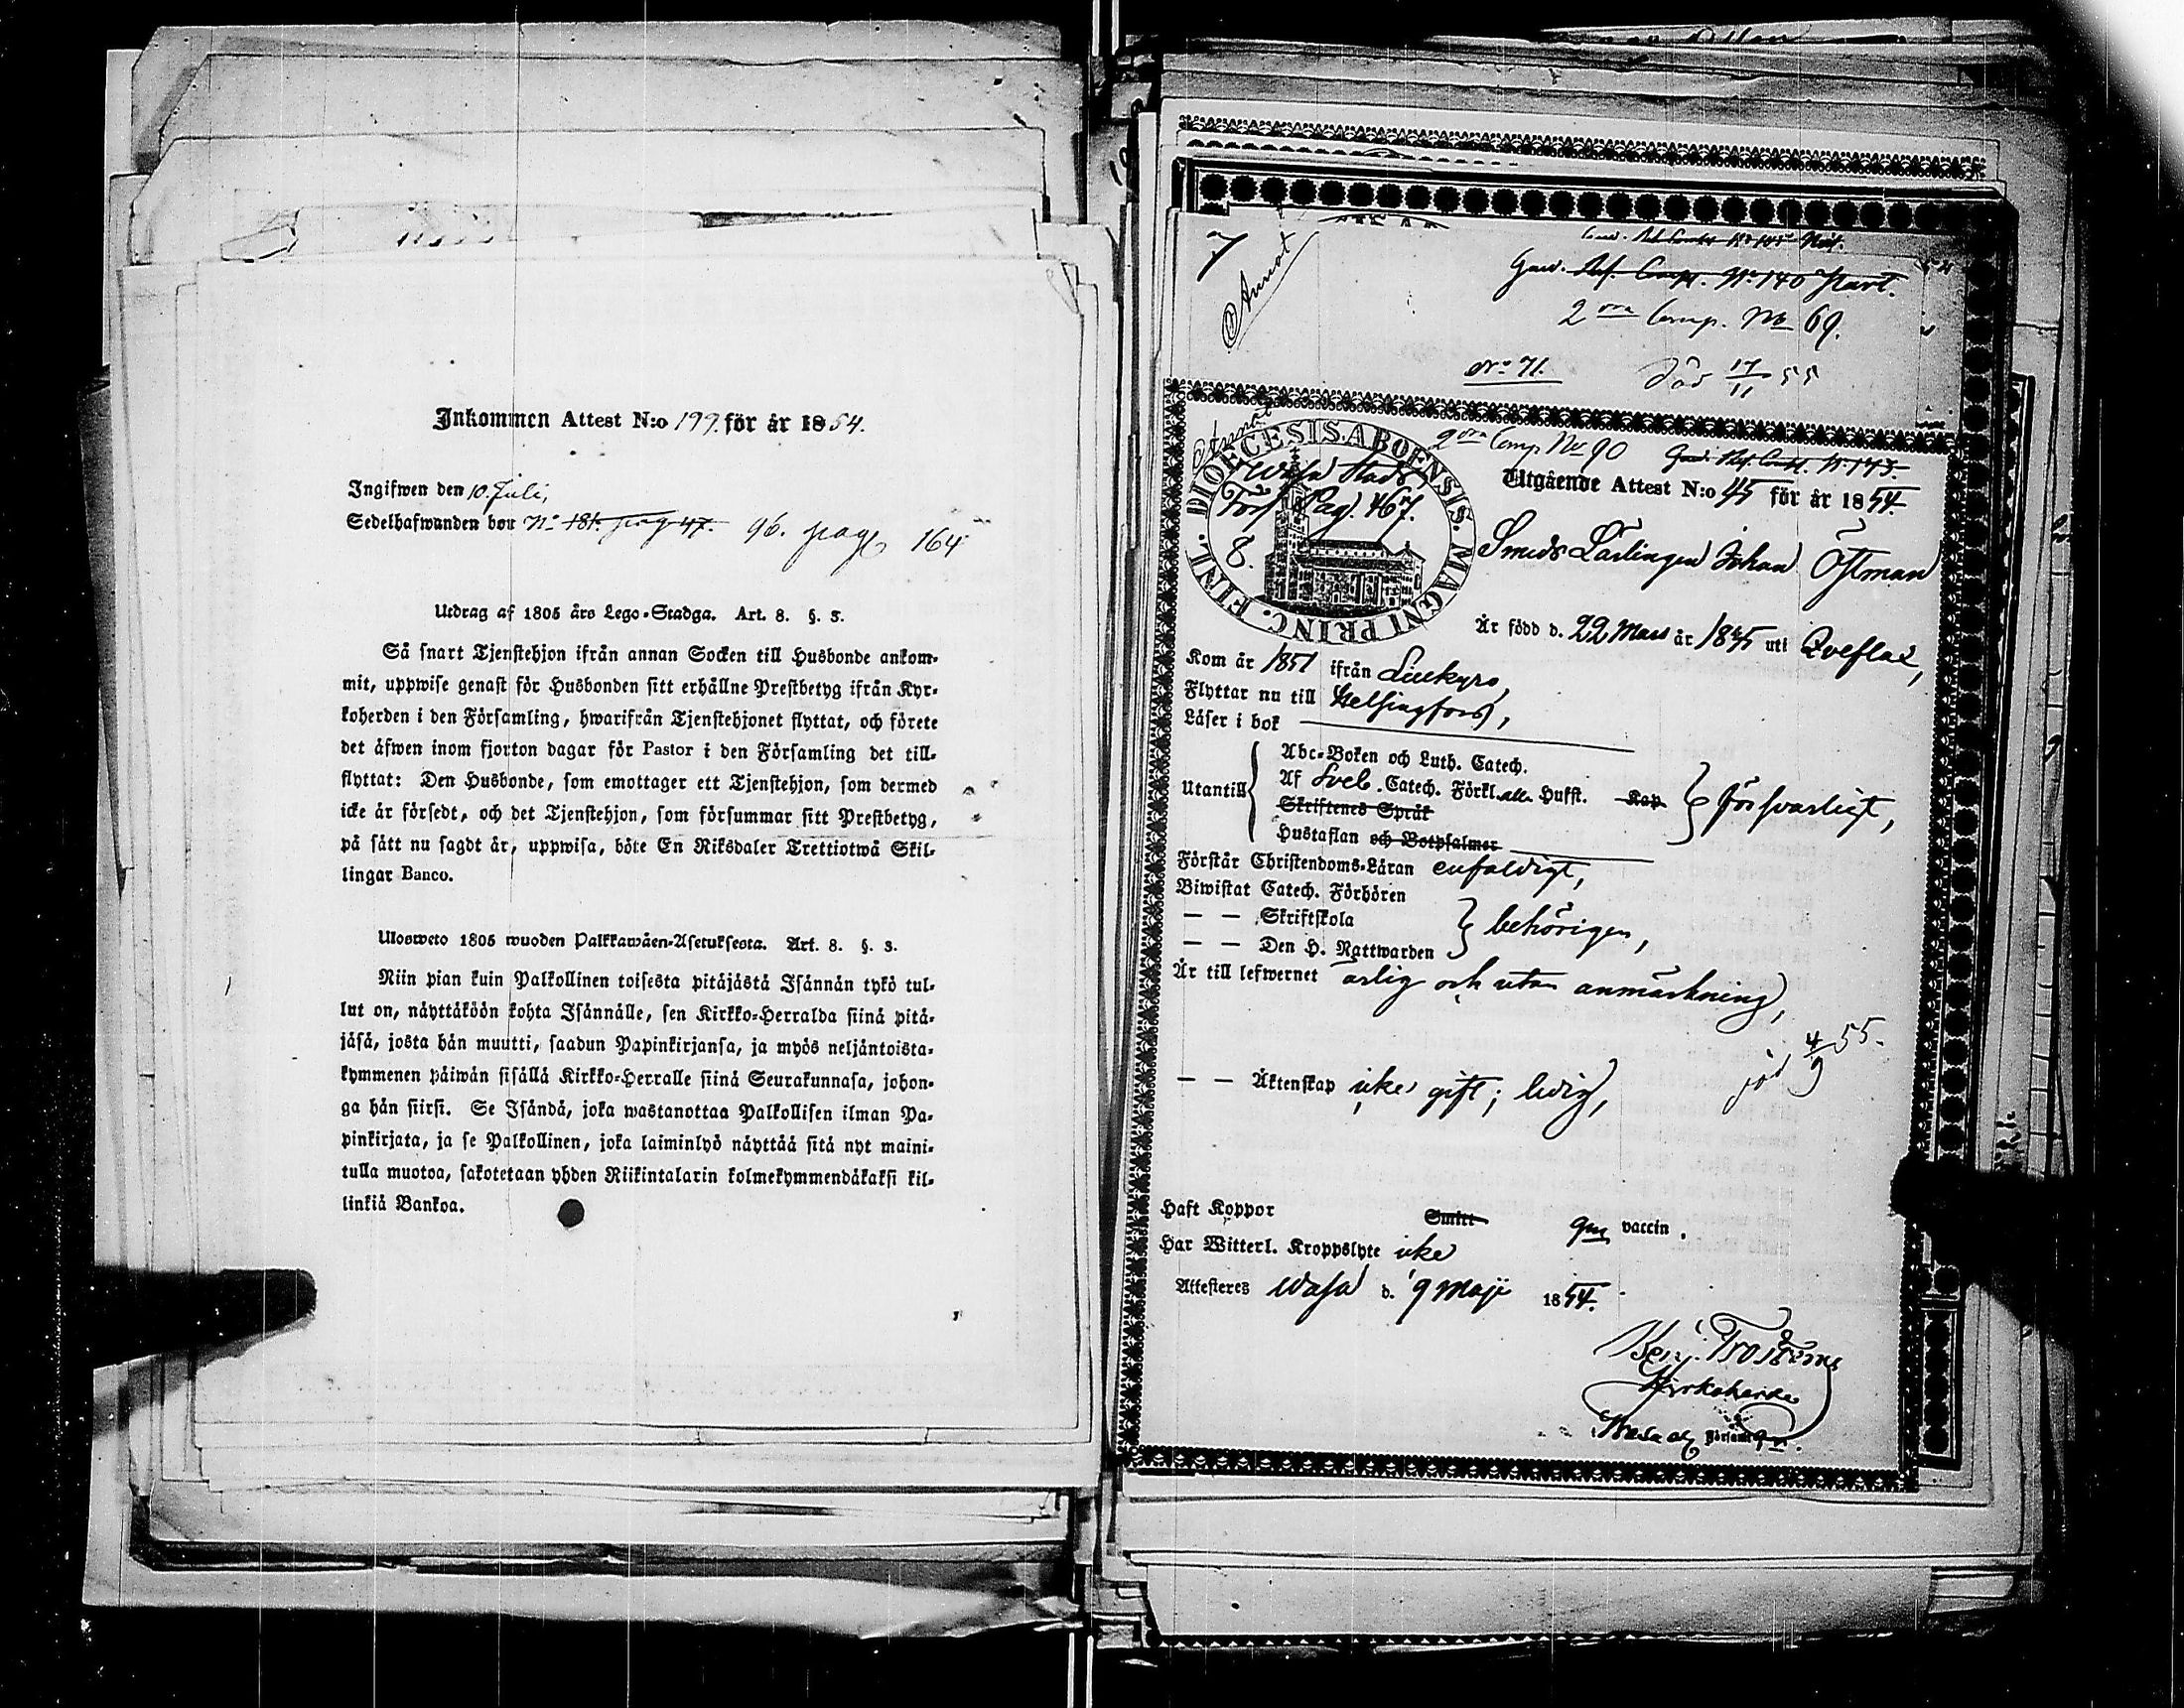 Inkommen Attest N:o 199. för år 1854.
Ingifwen den 10. Juli,
Sedelhafwanden bor No 181. pag 47. 96. pag 164
Utdrag af 1805 års Lego-Stadga. Art. 8. §. 3.
Så snart Tjenstehjon ifrån annan Socken till Husbonde ankom-
mit, uppwise genast för Husbonden sitt erhållne Prestbetyg ifrån Kyr-
koherden i den Församling, hwarifrån Tjenstehjonet flyttat, och förete
det äfwen inom fjorton dagar för Pastor i den Församling det till-
flyttat: Den Husbonde, som emottager ett Tjenstehjon, som dermed
icke är försedt, och det Tjenstehjon, som försummar sitt Prestbetyg,
på sätt nu sagdt är, uppwisa, böte En Riksdaler Trettiotwå Skil-
lingar Banco.
Ulosweto 1805 wuoden Palkkawäen-Asetuksesta. Art. 8. §. 3.
Niin pian kuin Palkollinen toisesta pitäjästä Isännän tykö tul-
lut on, näyttäköön kohta Isännälle, sen Kirkko-Herralda siinä pitä-
jäsä, josta hän muutti, saadun Papinkirjansa, ja myös neljäntoista-
kymmenen päiwän sisällä Kirkko-Herralle siinä Seurakunnasa, johon-
ga hän siirsi. Se Isändä, joka wastanottaa Palkollisen ilman Pa-
pinkirjata, ja se Palkollinen, joka laiminlyö näyttää sitä nyt maini-
tulla muotoa, sakotetaan yhden Riikintalarin kolmekymmendäkaksi kil-
linkiä Bankoa.
7
Annot
Gard. Ref. Comp. No 140 Start.
2dra Comp. No 69.
No 71. Död 17/11 55
Annot
2dra Comp No 90 Gard. Ref. Comp. No 143.
DIOECESIS. ABOENSIS. MAGNI PRINC. FINL.
Wasa Stads
Förs Pag. 467.
8.
Utgående Attest N:o 45 för år 1854.
Smeds Lärlingen Johan Östman
Är född d. 22 Mars år 1835 uti Qveflax,
Kom år 1851 ifrån Lillkyro,
Flyttar nu till Helsingfors,
Läser i bok
Utantill
Abc-Boken och Luth. Catech.
Af Sveb. Catech. Förkl. alla Hufst. Kap försvarligt,
Skriftenes Språk
Hustaflan och Botpsalmer
Förstår Christendoms-Läran enfaldigt,
Biwistat Catech. Förhören
— — Skriftskola behörigen,
— — Den H. Nattwarden
Är till lefwernet ärlig och utan anmärkning,
död 4/9 55.
— — Äktenskap icke gift; ledig,
Haft Koppor Smitt gm vaccin.
Har Witterl. Kroppslyte icke
Attesteres Wasa d. 9 Maji 1854.
Benj. Frosterus
Kyrkoherde
Wasa Församling.